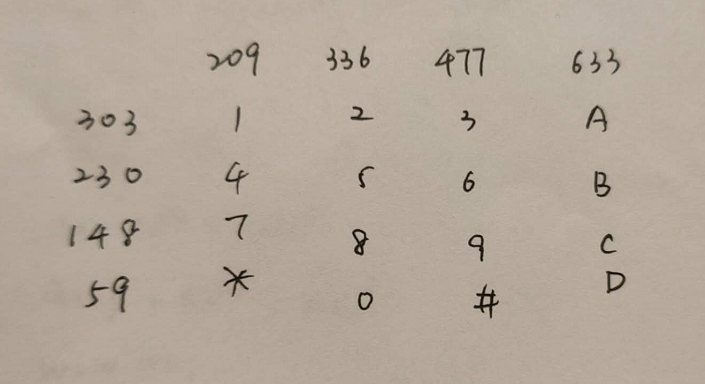 209 336 477 633
303 1 2 3 A
230 4 5 6 B
148 7 8 9 C
59 * 0 # D